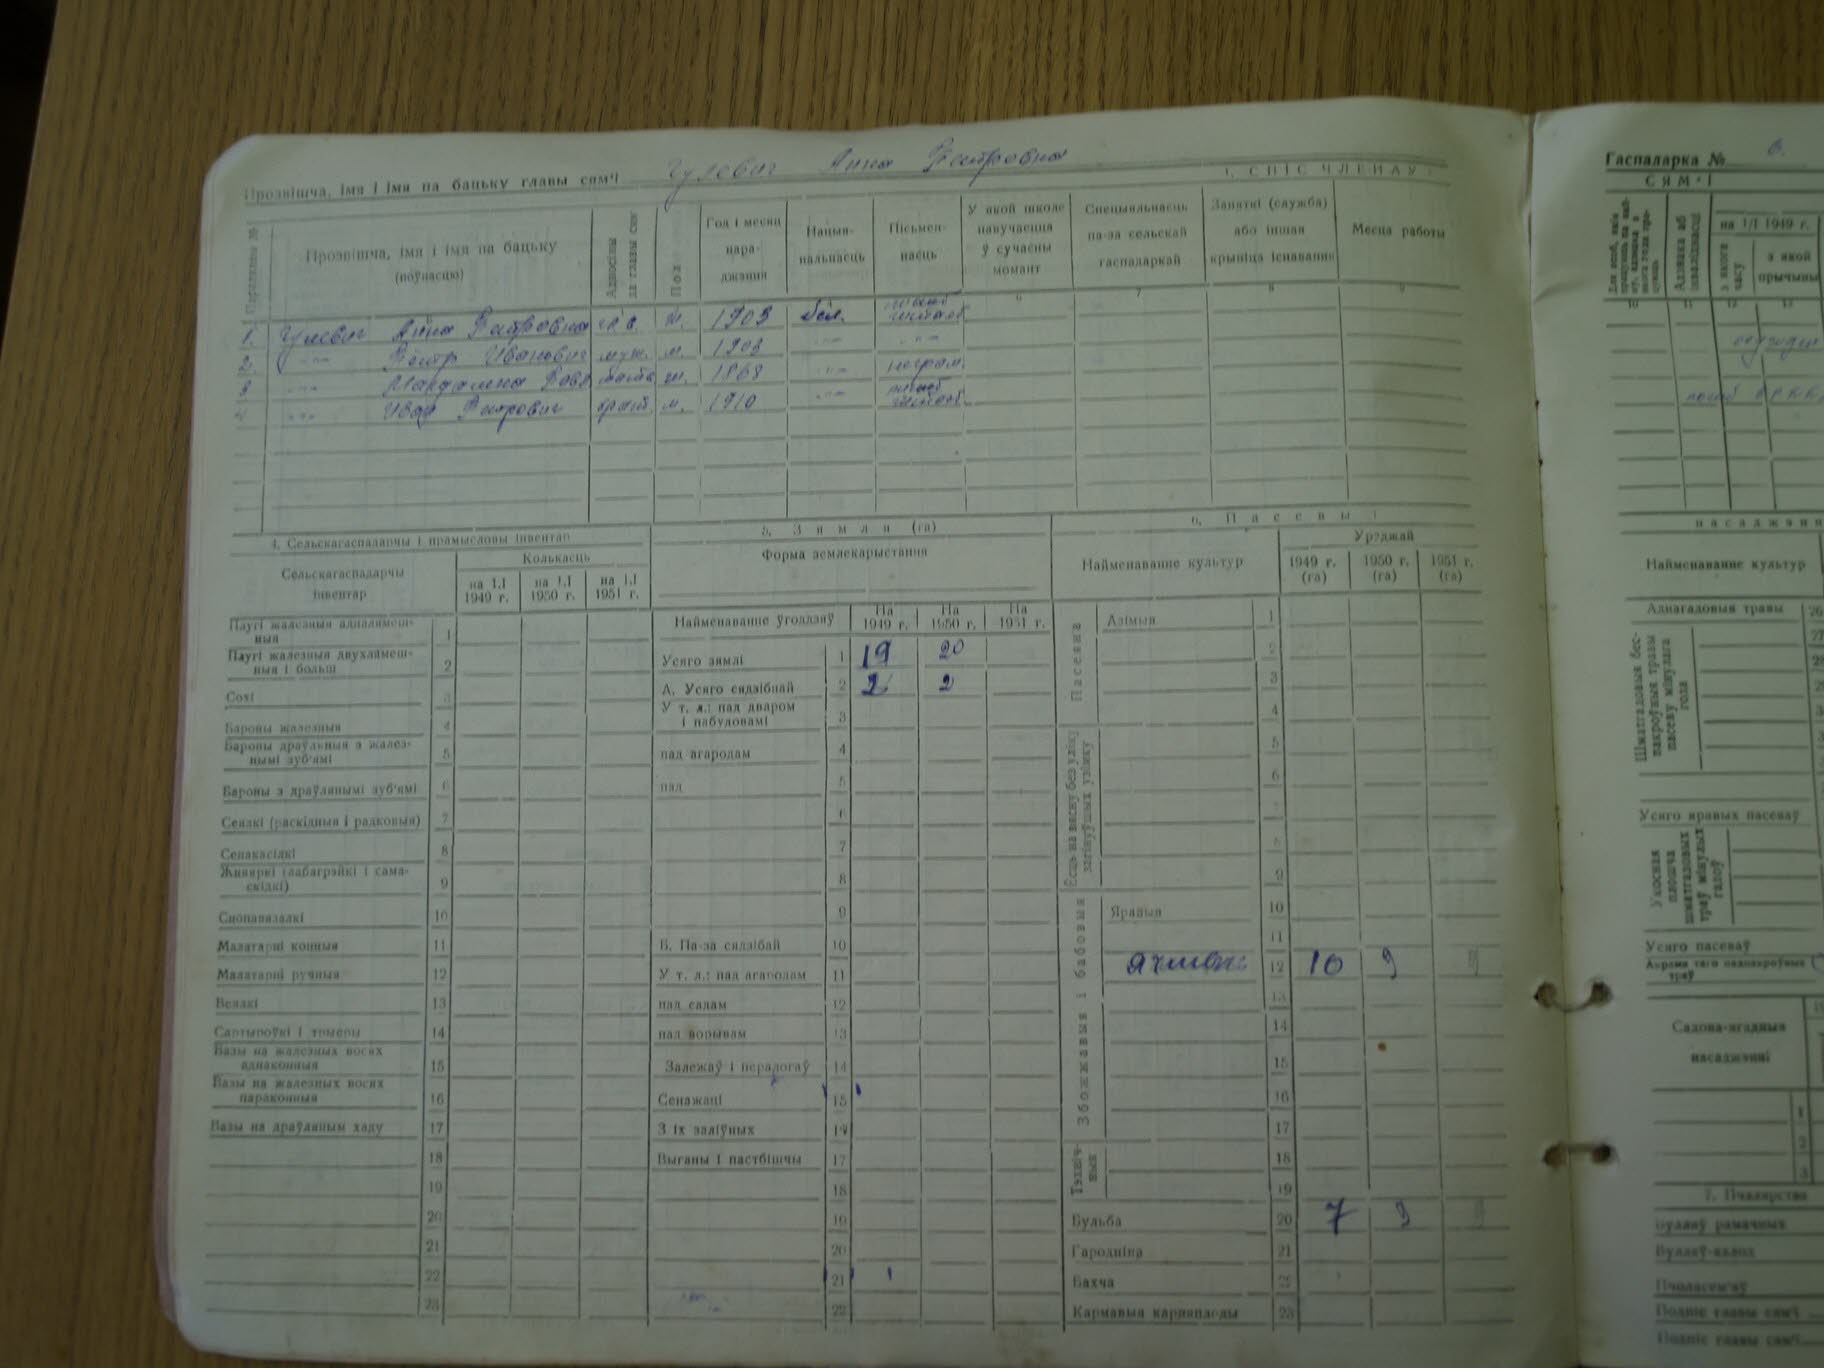 Прозвішча, імя і імя па бацьку главы сям'і Гулевич Анна Петровна
1. СПІС ЧЛЕНАЎ
Прозвішча, імя і імя па бацьку (поўнасцю)
Адносіны да главы сям'і
Пол
Год і месяц нараджэння
Нацыянальнасць
Пісьменнасць
У якой школе навучаецца ў сучасны момант
Спецыяльнасць па-за сельскай гаспадаркай
Заняткі (служба) або іншая крыніца існавання
Месца работы
6 7 8 9
1. Гулевич Анна Петровна 1903 бел.
2. -"- Петр Иванович муж. м. 1903 -"- -"-
3 -"- 1868 -"- неграм.
4 -"- Иван Петрович брат м. 1910 -"-
4. Сельскагаспадарчы і прамысловы інвентар
Сельскагаспадарчы інвентар
Колькасць
на 1.I 1949 г. на 1.I 1950 г. на 1.I 1951 г.
Плугі жалезныя аднаклямешныя 1
Плугі жалезныя двухлямешныя і больш 2
Сохі 3
Бароны жалезныя 4
Бароны драўляныя з жалезнымі зуб'ямі 5
Бароны з драўлянымі зуб'ямі 6
Сеялкі (раскідныя і радковыя) 7
Сенакасілкі 8
Жняяркі (лабагрэйкі і самаскідкі) 9
Снопавязалкі 10
Малатарні конныя 11
Малатарні ручныя 12
Веялкі 13
Сартыроўкі і трыеры 14
Вазы на жалезных восях аднаконныя 15
Вазы на жалезных восях параконныя 16
Вазы на драўляным хаду 17
18
19
20
21
22
23
5. Зямля (га)
Форма землекарыстання
Найменаванне ўгоддзяў На 1949 г. На 1950 г. На 1951 г.
Усяго зямлі 1 19 20
А. Усяго сядзібнай 2 2 2
У т. л.: пад дваром і пабудовамі 3
пад агародам 4
пад 5
6
7
8
9
Б. Па-за сядзібай 10
У т. л.: пад агародам 11
пад садам 12
пад ворывам 13
Залежаў і пералогаў 14
Сенажаці 15
З іх заліўных 16
Выганы і пастбішчы 17
18
19
20
21
22
6. Пасевы
Найменаванне культур
Ураджай
1949 г. (га) 1950 г. (га) 1951 г. (га)
Пасеяна
Азімыя 1
2
3
4
Ёсць на вясну без уліку загінуўшых узімку
5
6
7
8
9
Збожжавыя і бабовыя
Яравыя 10
11
ячмень 12 10 9 9
13
14
15
16
17
Тэхнічныя
18
19
Бульба 20 7 9
Гародніна 21
Бахча 22
Кармавыя карняплоды 23
Гаспадарка № 6.
СЯМ'І
на 1/I 1949 г.
з якога часу
з якой прычыны
10 11 12 13
насаджэння
Найменаванне культур
Аднагадовыя травы 26
Шматгадовыя беспакроўныя травы пасеву мінулага года
Усяго яравых пасеваў
Укосная плошча шматгадовых траў мінулых гадоў
Усяго пасеваў
Акрамя таго падпакроўных траў
Садова-ягадныя насаджэнні
1
2
3
7. Пчалярства
Вулляў рамачных
Вулляў-калод
Пчоласем'яў
Подпіс главы сям'і
Подпіс главы сям'і